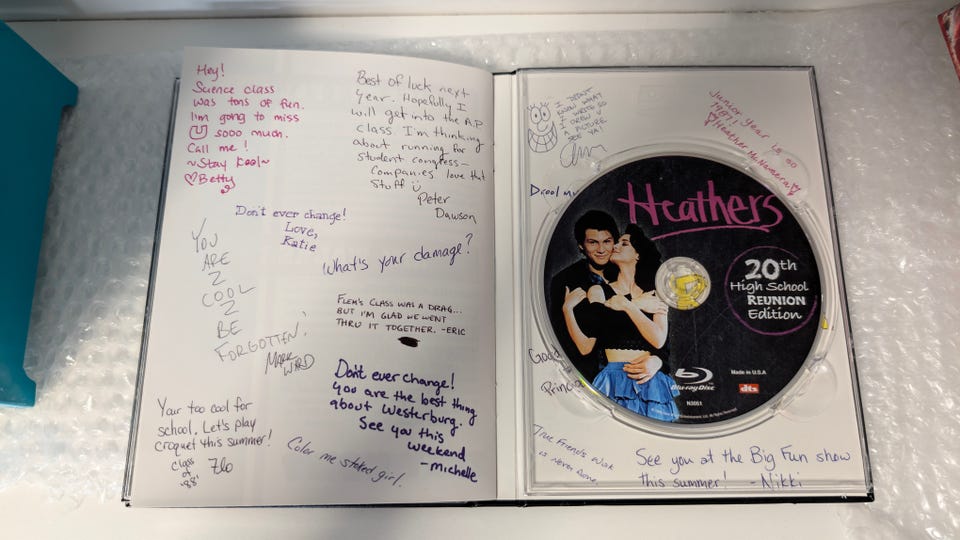 Hey!
Science class
was tons of fun.
I'm going to miss
U sooo much.
Call me!
~Stay Kool~
♡Betty
Best of luck next
year. Hopefully I
will get into the AP
class. I'm thinking
about running for
student congress—
Companies love that
stuff ü
Peter
Dawson
Don't ever change!
Love,
Katie
YOU
ARE
2
COOL
2
BE
FORGOTTEN!
MARK
WARD
What's your damage?
FLEM'S CLASS WAS A DRAG...
BUT I'M GLAD WE WENT
THRU IT TOGETHER. -ERIC
Don't ever change!
You are the best thing
about Westerburg.
See you this
weekend
-michelle
Your too cool for
school. Let's play
croquet this summer!
class
of
'88'
Zlo
Color me stoked girl.
I DIDN'T
KNOW WHAT
2 WRITE SO
I DREW U
A PICTURE
SEE YA!
Junior Year is so
1987!
♡Heather McNamara♡
Drool
Heathers
20th
High School
REUNION
Edition
Blu-ray Disc
Made in U.S.A
dts
N3051
Good
True Friend's Work
is Never Done.
See you at the Big Fun show
this summer! -Nikki